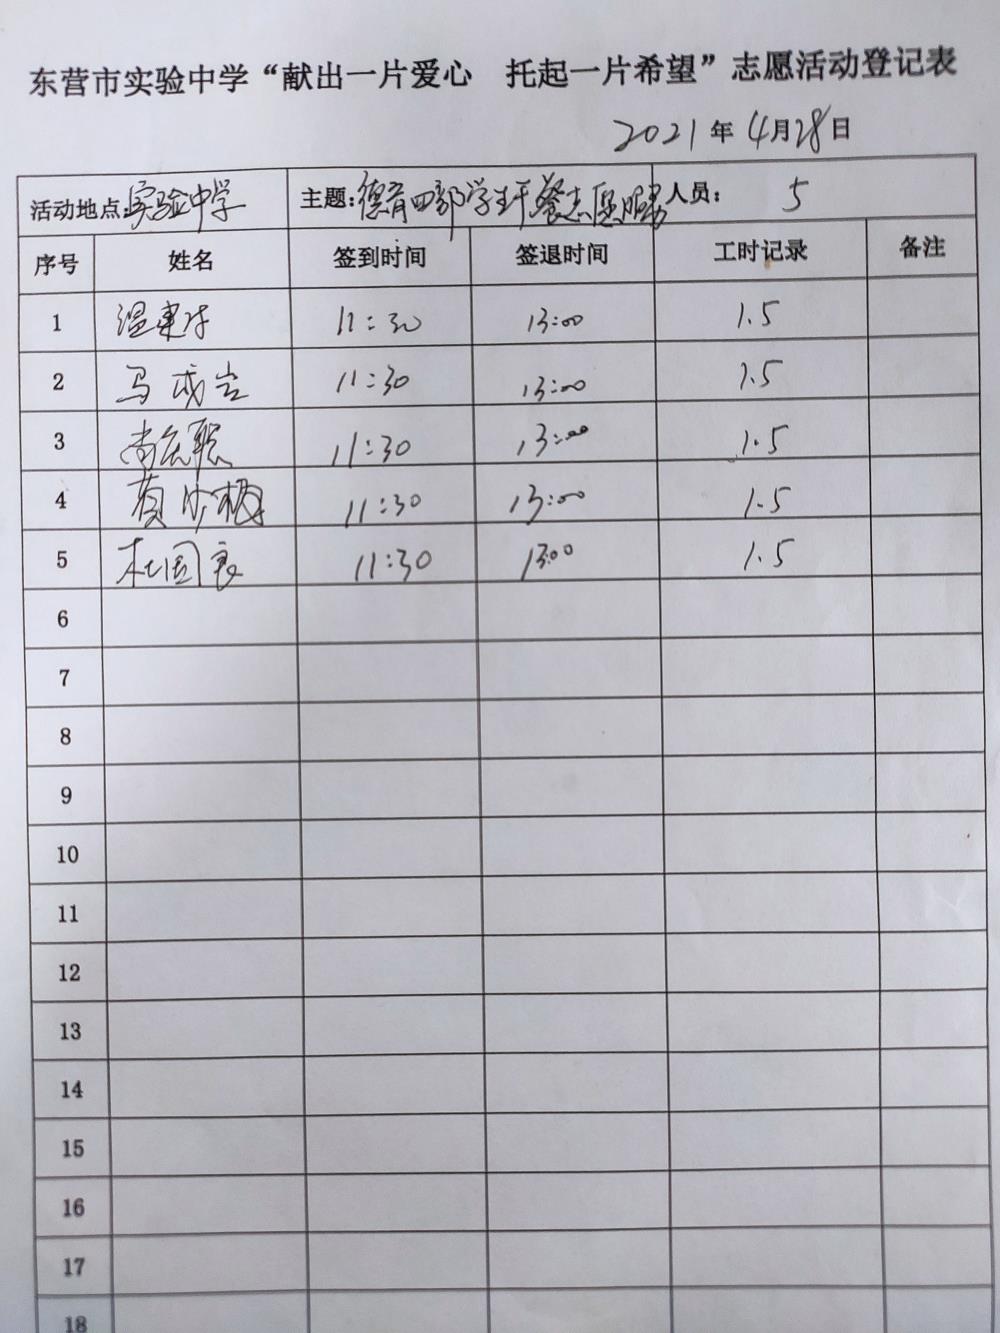 东营市实验中学“献出一片爱心 托起一片希望”志愿活动登记表
2021年4月28日
活动地点:实验中学 主题:德育四部学生午餐志愿服务 人员: 5
序号 姓名 签到时间 签退时间 工时记录 备注
1 温 11:30 13:00 1.5
2 马成岩 11:30 13:00 1.5
3 尚 聪 11:30 13:00 1.5
4 11:30 13:00 1.5
5 杜国良 11:30 13:00 1.5
6
7
8
9
10
11
12
13
14
15
16
17
18